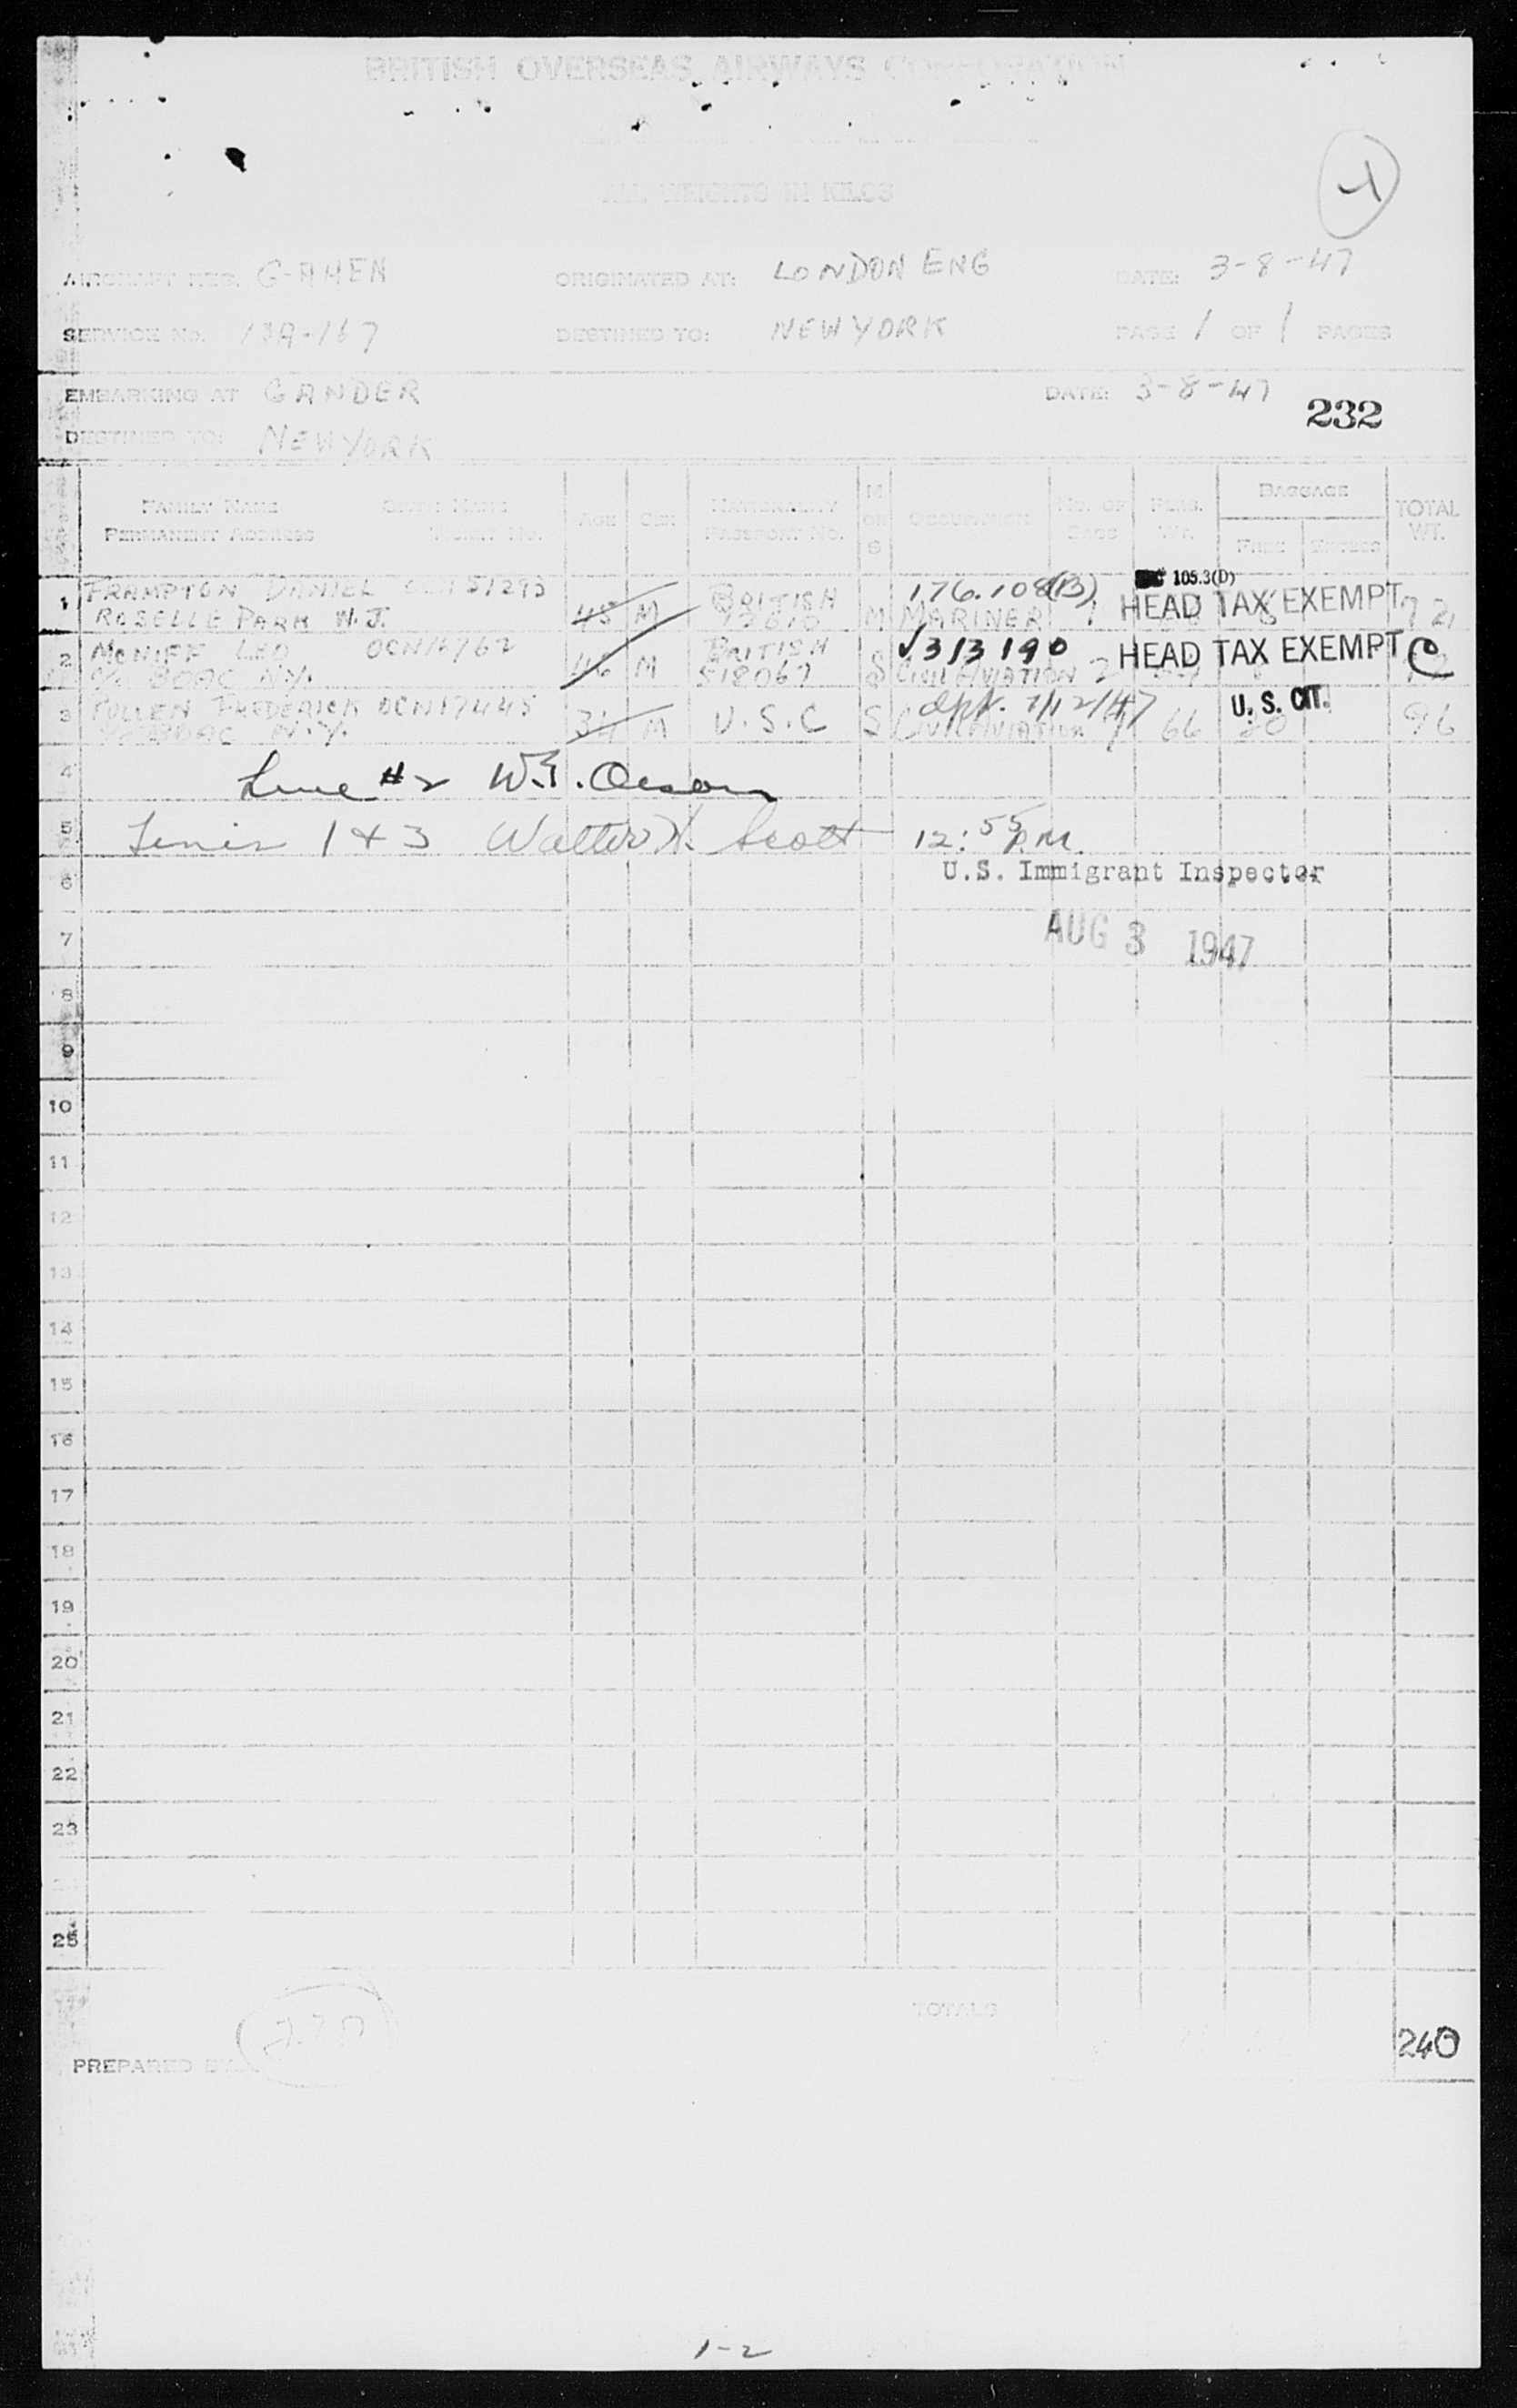 BRITISH OVERSEAS AIRWAYS CORPORATION
ALL WEIGHTS IN KILOS
AIRCRAFT REG. G-AHEN ORIGINATED AT: LONDON ENG DATE: 3-8-47
SERVICE No. DESTINED TO: NEW YORK PAGE 1 OF 1 PAGES
EMBARKING AT GANDER DATE: 3-8-47
232
DESTINED TO: NEW YORK
FAMILY NAME GIVEN NAME AGE SEX NATIONALITY M OR S OCCUPATION No. OF BAGS PERS. WT. BAGGAGE TOTAL WT.
PERMANENT ADDRESS TICKET No. PASSPORT No. FREE EXCESS
1 FRAMPTON DANIEL 48 M BRITISH M 176.108(B) 105.3(D)
ROSELLE PARK N.J. MARINER 1 HEAD TAX EXEMPT 72
2 MCNIFF LEO 46 M BRITISH S √313190 HEAD TAX EXEMPT C
C/O BOAC N.Y. 518067 CIVIL AVIATION 2
3 PULLEN FREDERICK 34 M U.S.C S 7/12/47 U.S. CIT.
C/O BOAC N.Y. CIVIL AVIATION 66 96
4 Line #2 W.E. Olson
5 Lines 1 & 3 Walter Scott 12:55 P.M.
6 U.S. Immigrant Inspector
7 AUG 3 1947
8
9
10
11
12
13
14
15
16
17
18
19
20
21
22
23
25
TOTALS
PREPARED BY 240
1-2